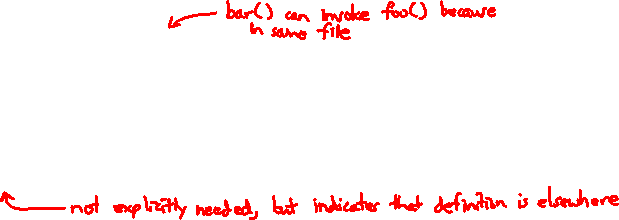 bar() can invoke foo() because
in same file
not explicitly needed, but indicates that definition is elsewhere